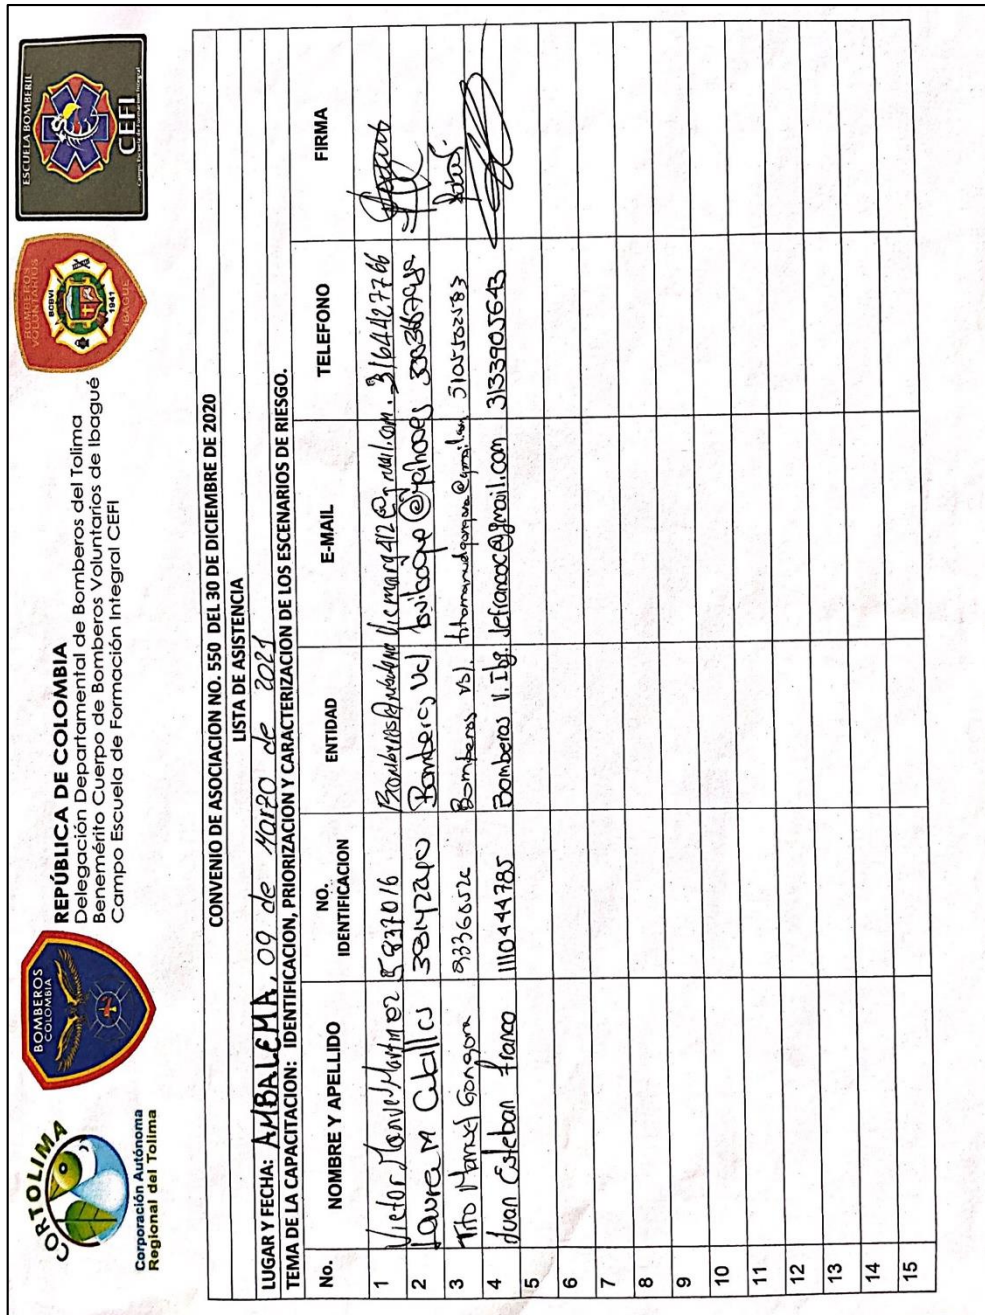 CORTOLIMA
Corporación Autónoma
Regional del Tolima
BOMBEROS
COLOMBIA
REPÚBLICA DE COLOMBIA
Delegación Departamental de Bomberos del Tolima
Benemérito Cuerpo de Bomberos Voluntarios de Ibagué
Campo Escuela de Formación Integral CEFI
BOMBEROS
VOLUNTARIOS
BCBVI
1941
IBAGUÉ
ESCUELA BOMBERIL
CEFI
CONVENIO DE ASOCIACION NO. 550 DEL 30 DE DICIEMBRE DE 2020
LISTA DE ASISTENCIA
LUGAR Y FECHA: AMBALEMA, 09 de Marzo de 2021
TEMA DE LA CAPACITACION: IDENTIFICACION, PRIORIZACION Y CARACTERIZACION DE LOS ESCENARIOS DE RIESGO.
No. NOMBRE Y APELLIDO NO. IDENTIFICACION ENTIDAD E-MAIL TELEFONO FIRMA
1 Victor Manuel Martinez 5837016 Bomberos Ambalema Vicmarq412@gmail.com. 3164427766
2 Laura M Ceballos 38142240 Bomberos Vol
3 Tito Manuel Gongora 93360526 Bomberos Vol. 3105502583
4 Juan Esteban Franco 1110444785 Bomberos V. Ibg. Jefrancoc@gmail.com 3133905643
5
6
7
8
9
10
11
12
13
14
15